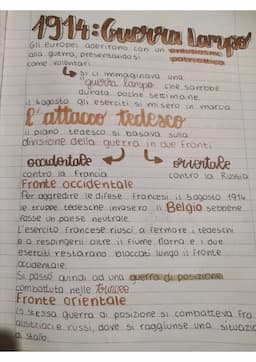 1914: Guerra Lampo
Gli Europei aderirono con un entusiasmo
alla guerra, presentandosi patriottico
come volontari
↳ si ci immaginava una
"guerra lampo" che sarebbe
durata poche settimane.
il 4 agosto gli eserciti si misero in marcia
l'attacco tedesco
il piano tedesco si basava sulla
divisione della guerra in due fronti
occidentale orientale
contro la Francia contro la Russia
Fronte occidentale
Per aggredire le difese francesi il 5 agosto 1914
le truppe tedesche invasero il Belgio sebbene
fosse un paese neutrale.
L'esercito francese riuscì a fermare i tedeschi
e a respingerli oltre il fiume Marna e i due
eserciti restarono bloccati lungo il fronte
occidentale.
Si passò quindi ad una guerra di posizione
combattuta nelle trincee
Fronte orientale
La stessa guerra di posizione si combatteva fra
austriaci e russi, dove si raggiunse una situazio
di stallo.